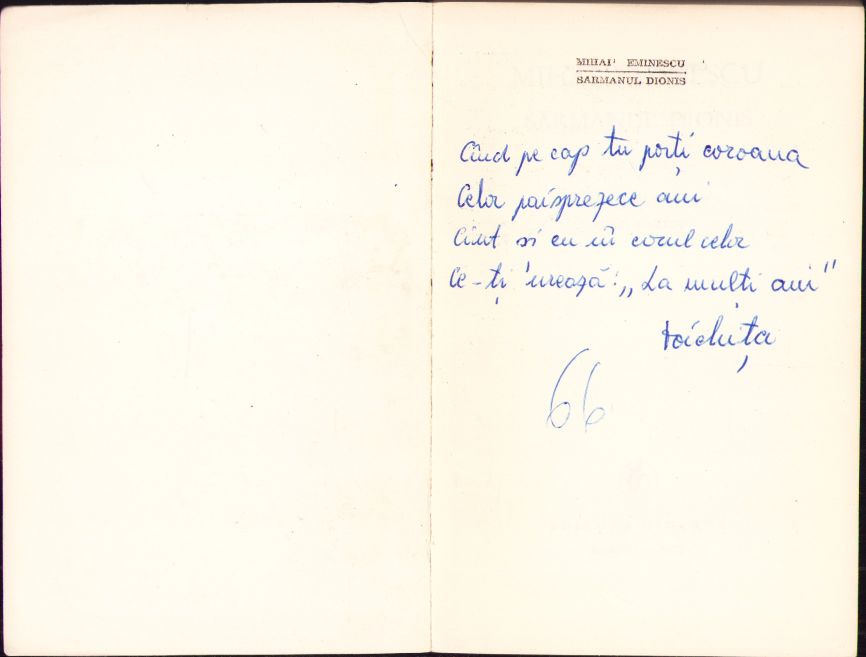 MIHAI EMINESCU
SARMANUL DIONIS
Cînd pe cap tu porți coroana
Celor paisprezece ani
Cînt și eu în corul celor
Ce-ți urează: „La mulți ani"
66